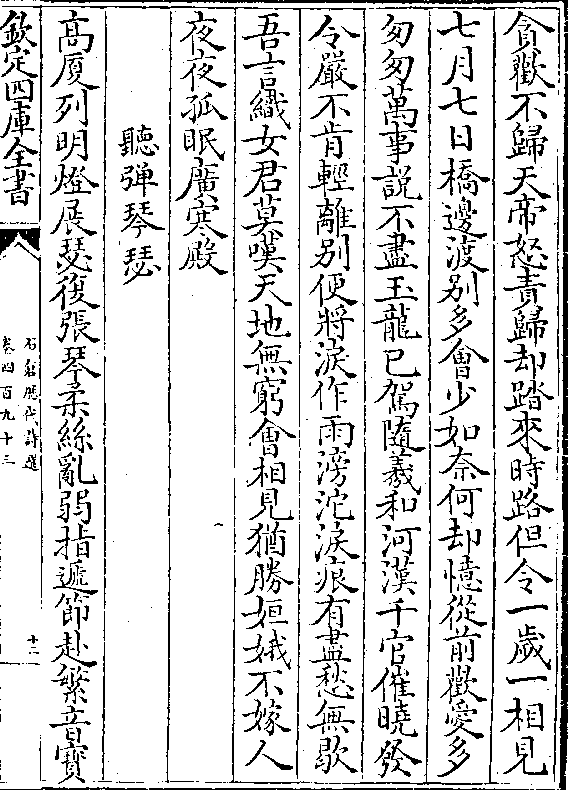 貪歡不歸天帝怒責歸却踏來時路但令一歲一相見
七月七日橋邊渡别多會少如奈何却憶從前歡愛多
匆匆萬事説不盡玉龍已駕隨羲和河漢千官催曉發
令嚴不肯輕離别便將淚作雨滂沱淚痕有盡愁無歇
吾言織女君莫嘆天地無窮會相見猶勝姮娥不嫁人
夜夜孤眠廣寒殿
聽弹琴瑟
高厦列明燈展瑟復張琴柔絲亂弱指遞節赴繁音寶
欽定四庫全書
石倉歴代詩選
卷四百九十三
十二